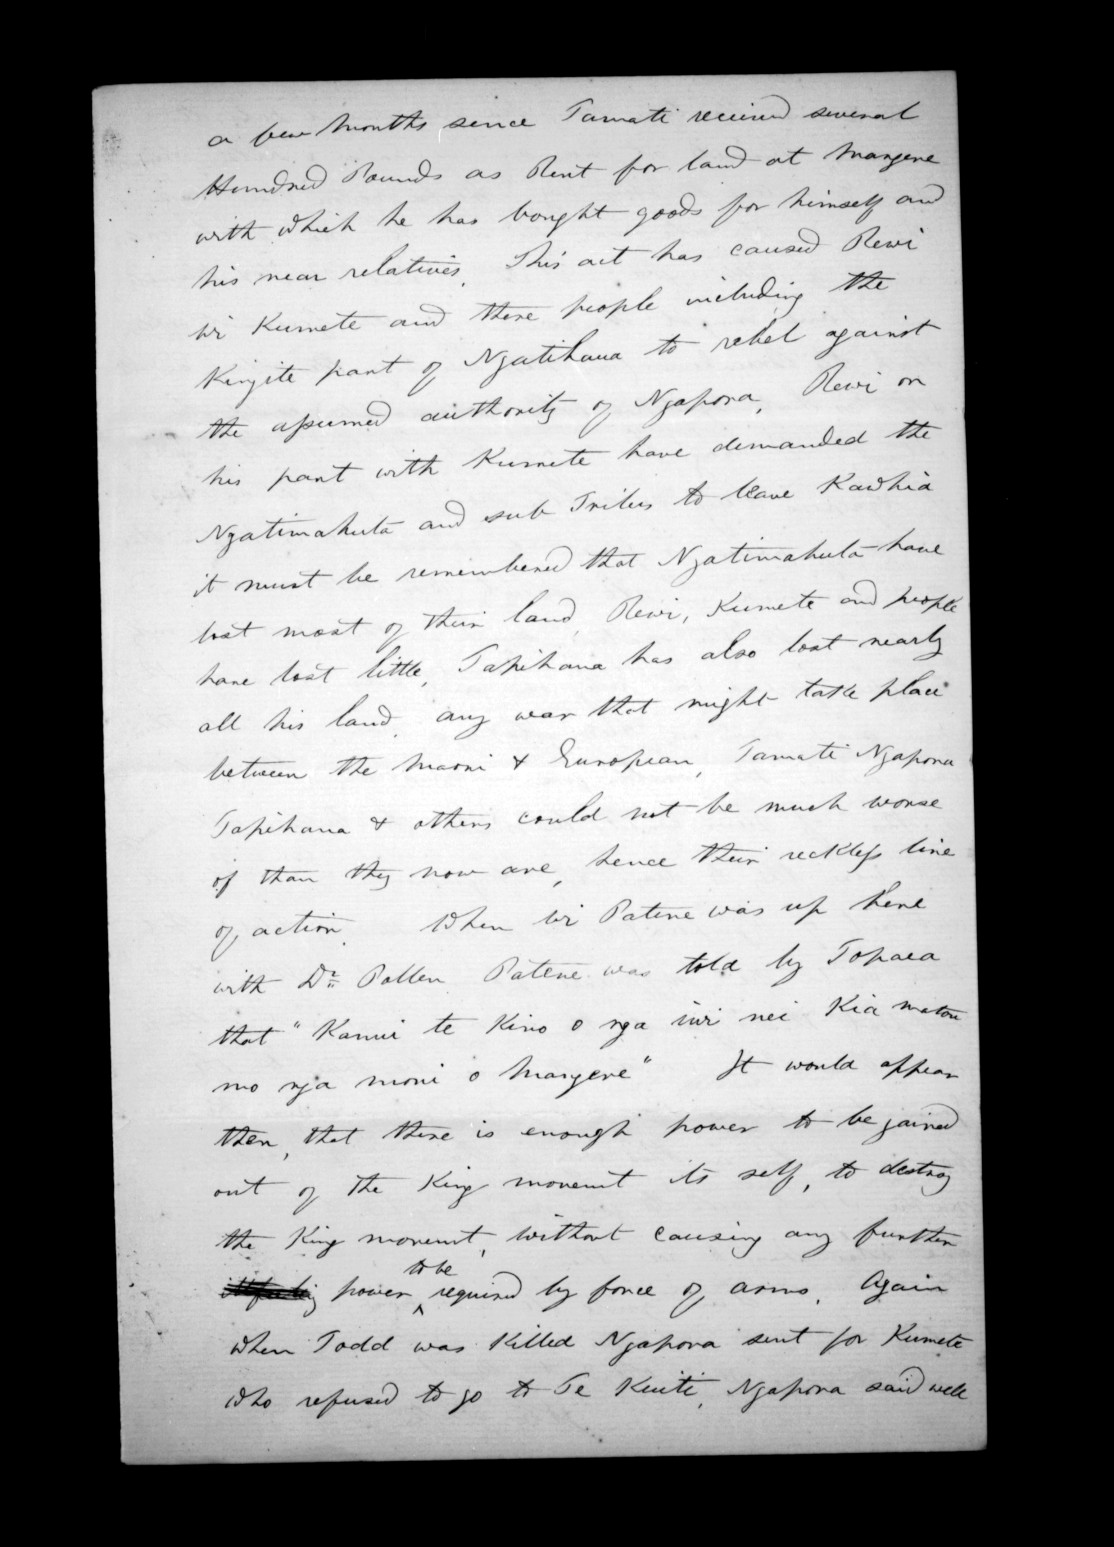 a few months since Tamati received several
Hundred Pounds as Rent for land at Mangere
with which he has bought goods for himself and
his near relatives, This act has caused Rewi
Wi Kumete and there people including the
Kingite part of Ngatihaua to rebel against
the assumed authority of Ngapora, Rewi on
his part with Kumete have demanded the
Ngatimahuta and sub Tribes to leave Kawhia
it must be remembered that Ngatimahuta have
lost most of their land, Rewi, Kumete and people
have lost little, Tapihana has also lost nearly
all his land, any war that might take place
between the Maori & European, Tamati Ngapora
Tapihana & others could not be much worse
of than they now are, hence their reckless line
of action. When Wi Patene was up here
with Dr. Pollen Patene was told by Topaea
that "Kanui te Kino o nga iwi nei Kia matou
mo nga moni o Mangere" It would appear
then, that there is enough power to be gained
out of the King movemt its self, to destroy
the King movemt, without causing any further
power to be required by force of arms. Again
when Todd was Killed Ngapora sent for Kumete
who refused to go to Te Kuiti, Ngapora said well